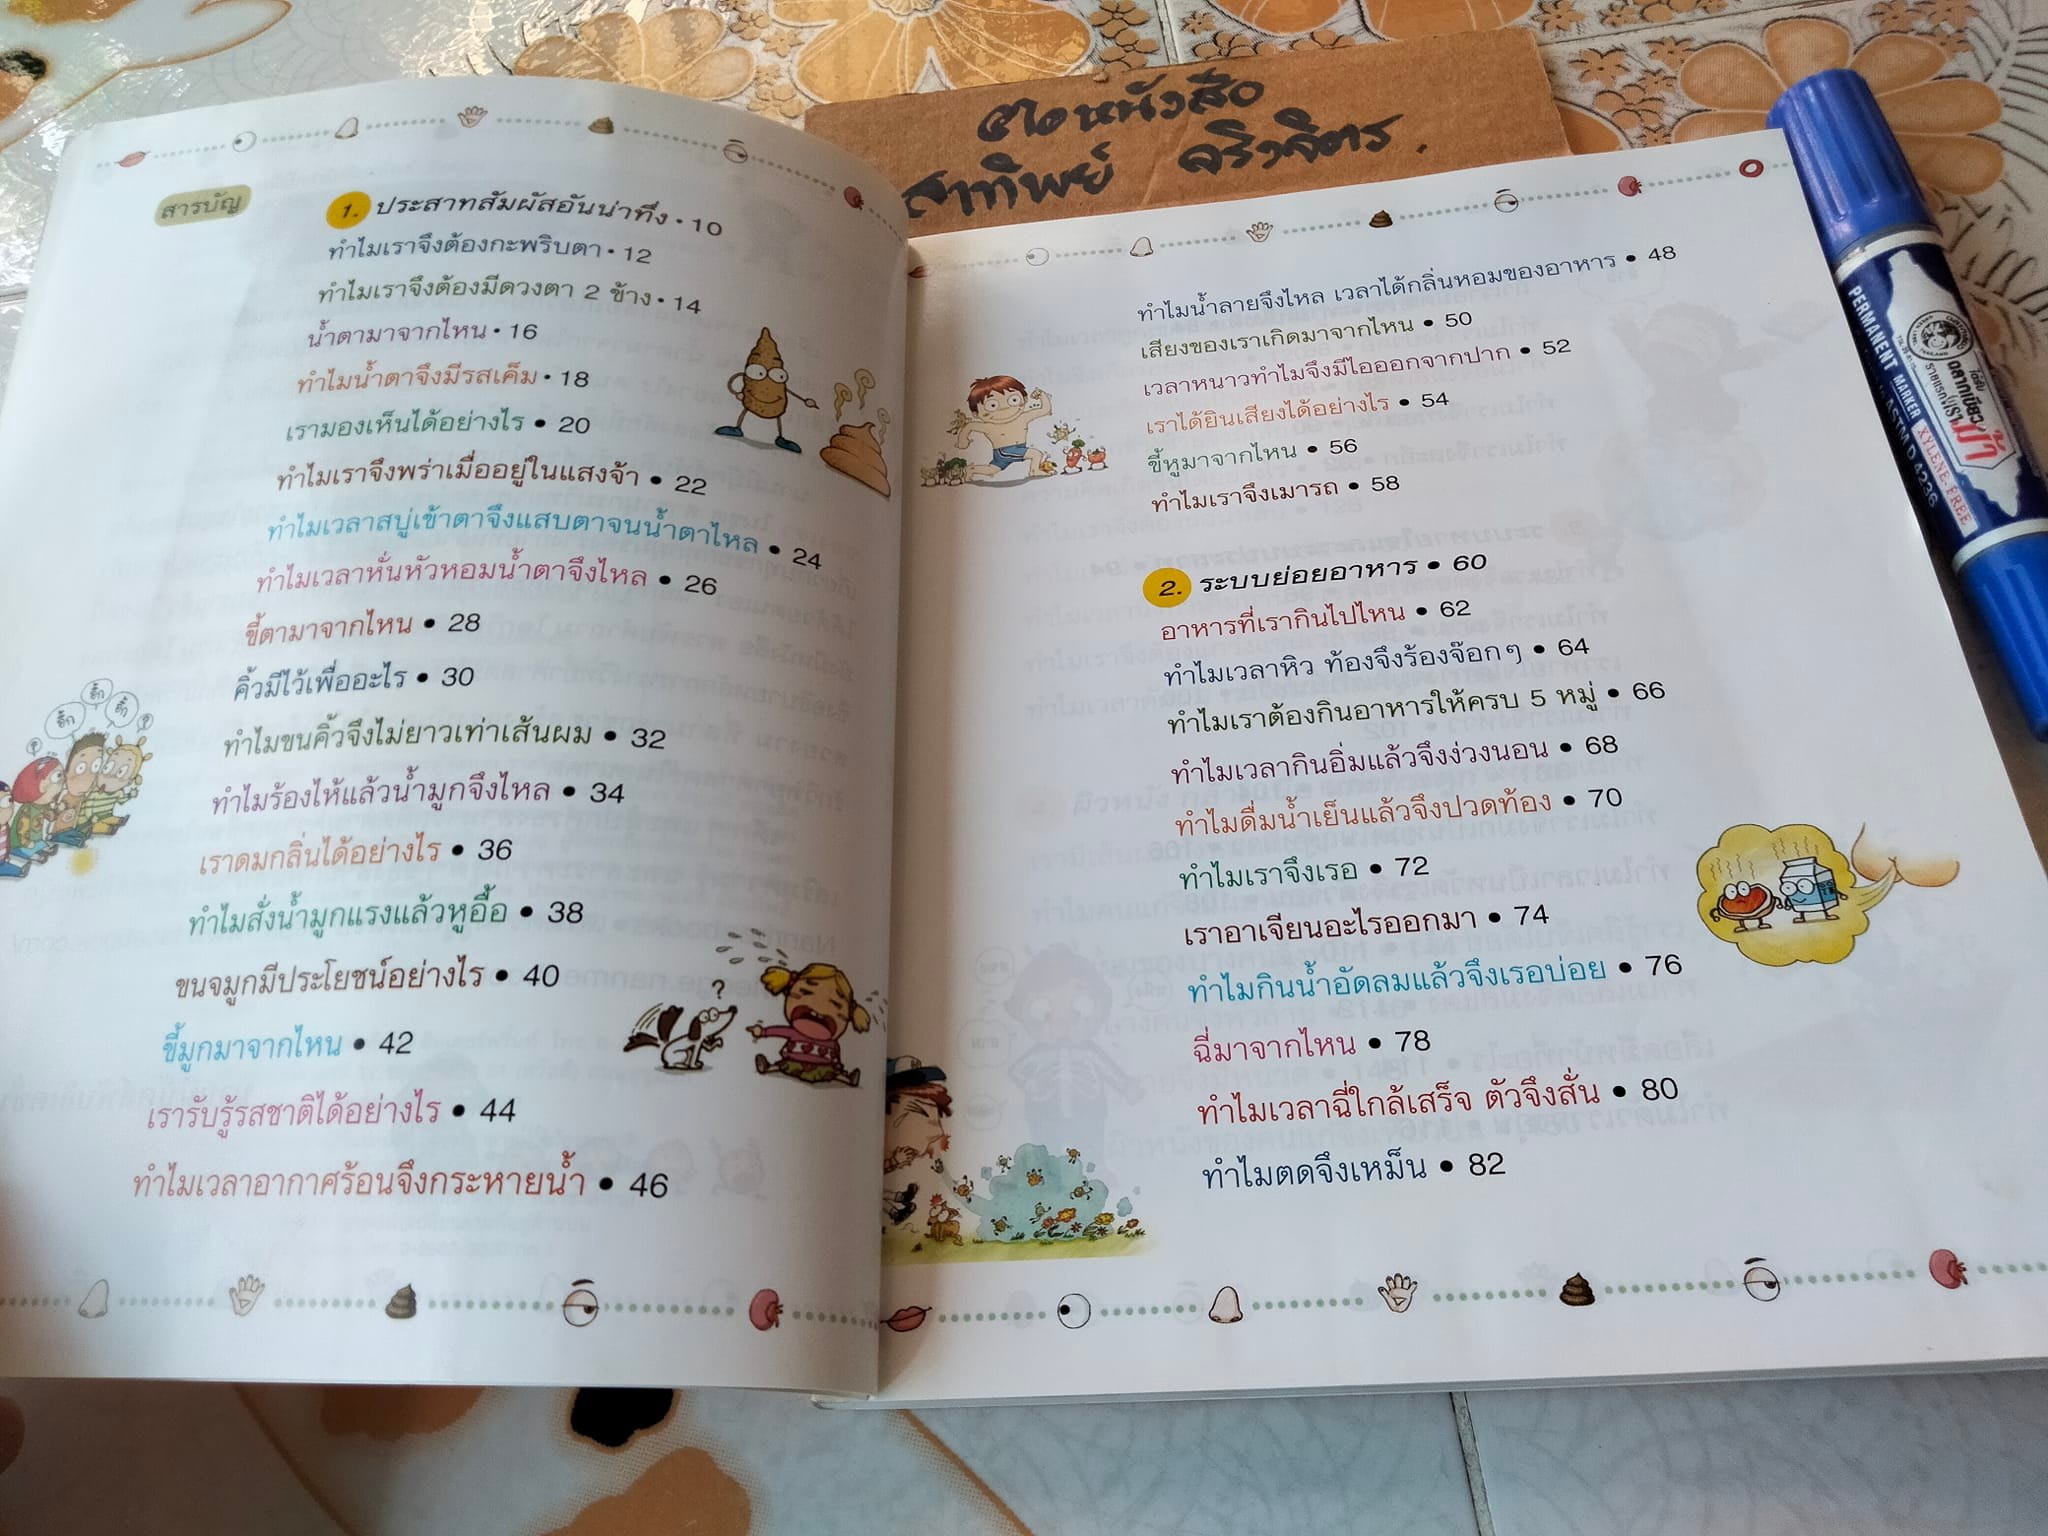 สารบัญ
1. ประสาทสัมผัสอันน่าทึ่ง • 10
ทำไมเราจึงต้องกะพริบตา • 12
ทำไมเราจึงต้องมีดวงตา 2 ข้าง • 14
น้ำตามาจากไหน • 16
ทำไมน้ำตาจึงมีรสเค็ม • 18
เรามองเห็นได้อย่างไร • 20
ทำไมเราจึงพร่าเมื่ออยู่ในแสงจ้า • 22
ทำไมเวลาสบู่เข้าตาจึงแสบตาจนน้ำตาไหล • 24
ทำไมเวลาหั่นหัวหอมน้ำตาจึงไหล • 26
ขี้ตามาจากไหน • 28
คิ้วมีไว้เพื่ออะไร • 30
ทำไมขนคิ้วจึงไม่ยาวเท่าเส้นผม • 32
ทำไมร้องไห้แล้วน้ำมูกจึงไหล • 34
เราดมกลิ่นได้อย่างไร • 36
ทำไมสั่งน้ำมูกแรงแล้วหูอื้อ • 38
ขนจมูกมีประโยชน์อย่างไร • 40
ขี้มูกมาจากไหน • 42
เรารับรู้รสชาติได้อย่างไร • 44
ทำไมเวลาอากาศร้อนจึงกระหายน้ำ • 46
อึ๊ก
อึ๊ก
อึ๊ก
?
ทำไมน้ำลายจึงไหล เวลาได้กลิ่นหอมของอาหาร • 48
เสียงของเราเกิดมาจากไหน • 50
เวลาหนาวทำไมจึงมีไอออกจากปาก • 52
เราได้ยินเสียงได้อย่างไร • 54
ขี้หูมาจากไหน • 56
ทำไมเราจึงเมารถ • 58
2. ระบบย่อยอาหาร • 60
อาหารที่เรากินไปไหน • 62
ทำไมเวลาหิว ท้องจึงร้องจ๊อกๆ • 64
ทำไมเราต้องกินอาหารให้ครบ 5 หมู่ • 66
ทำไมเวลากินอิ่มแล้วจึงง่วงนอน • 68
ทำไมดื่มน้ำเย็นแล้วจึงปวดท้อง • 70
ทำไมเราจึงเรอ • 72
เราอาเจียนอะไรออกมา • 74
ทำไมกินน้ำอัดลมแล้วจึงเรอบ่อย • 76
ฉี่มาจากไหน • 78
ทำไมเวลาฉี่ใกล้เสร็จ ตัวจึงสั่น • 80
ทำไมตดจึงเหม็น • 82
สาทิพย์ จริงจิตร.
PERMANENT MARKER XYLENE-FREE
ASTM D 4236
ตราม้า